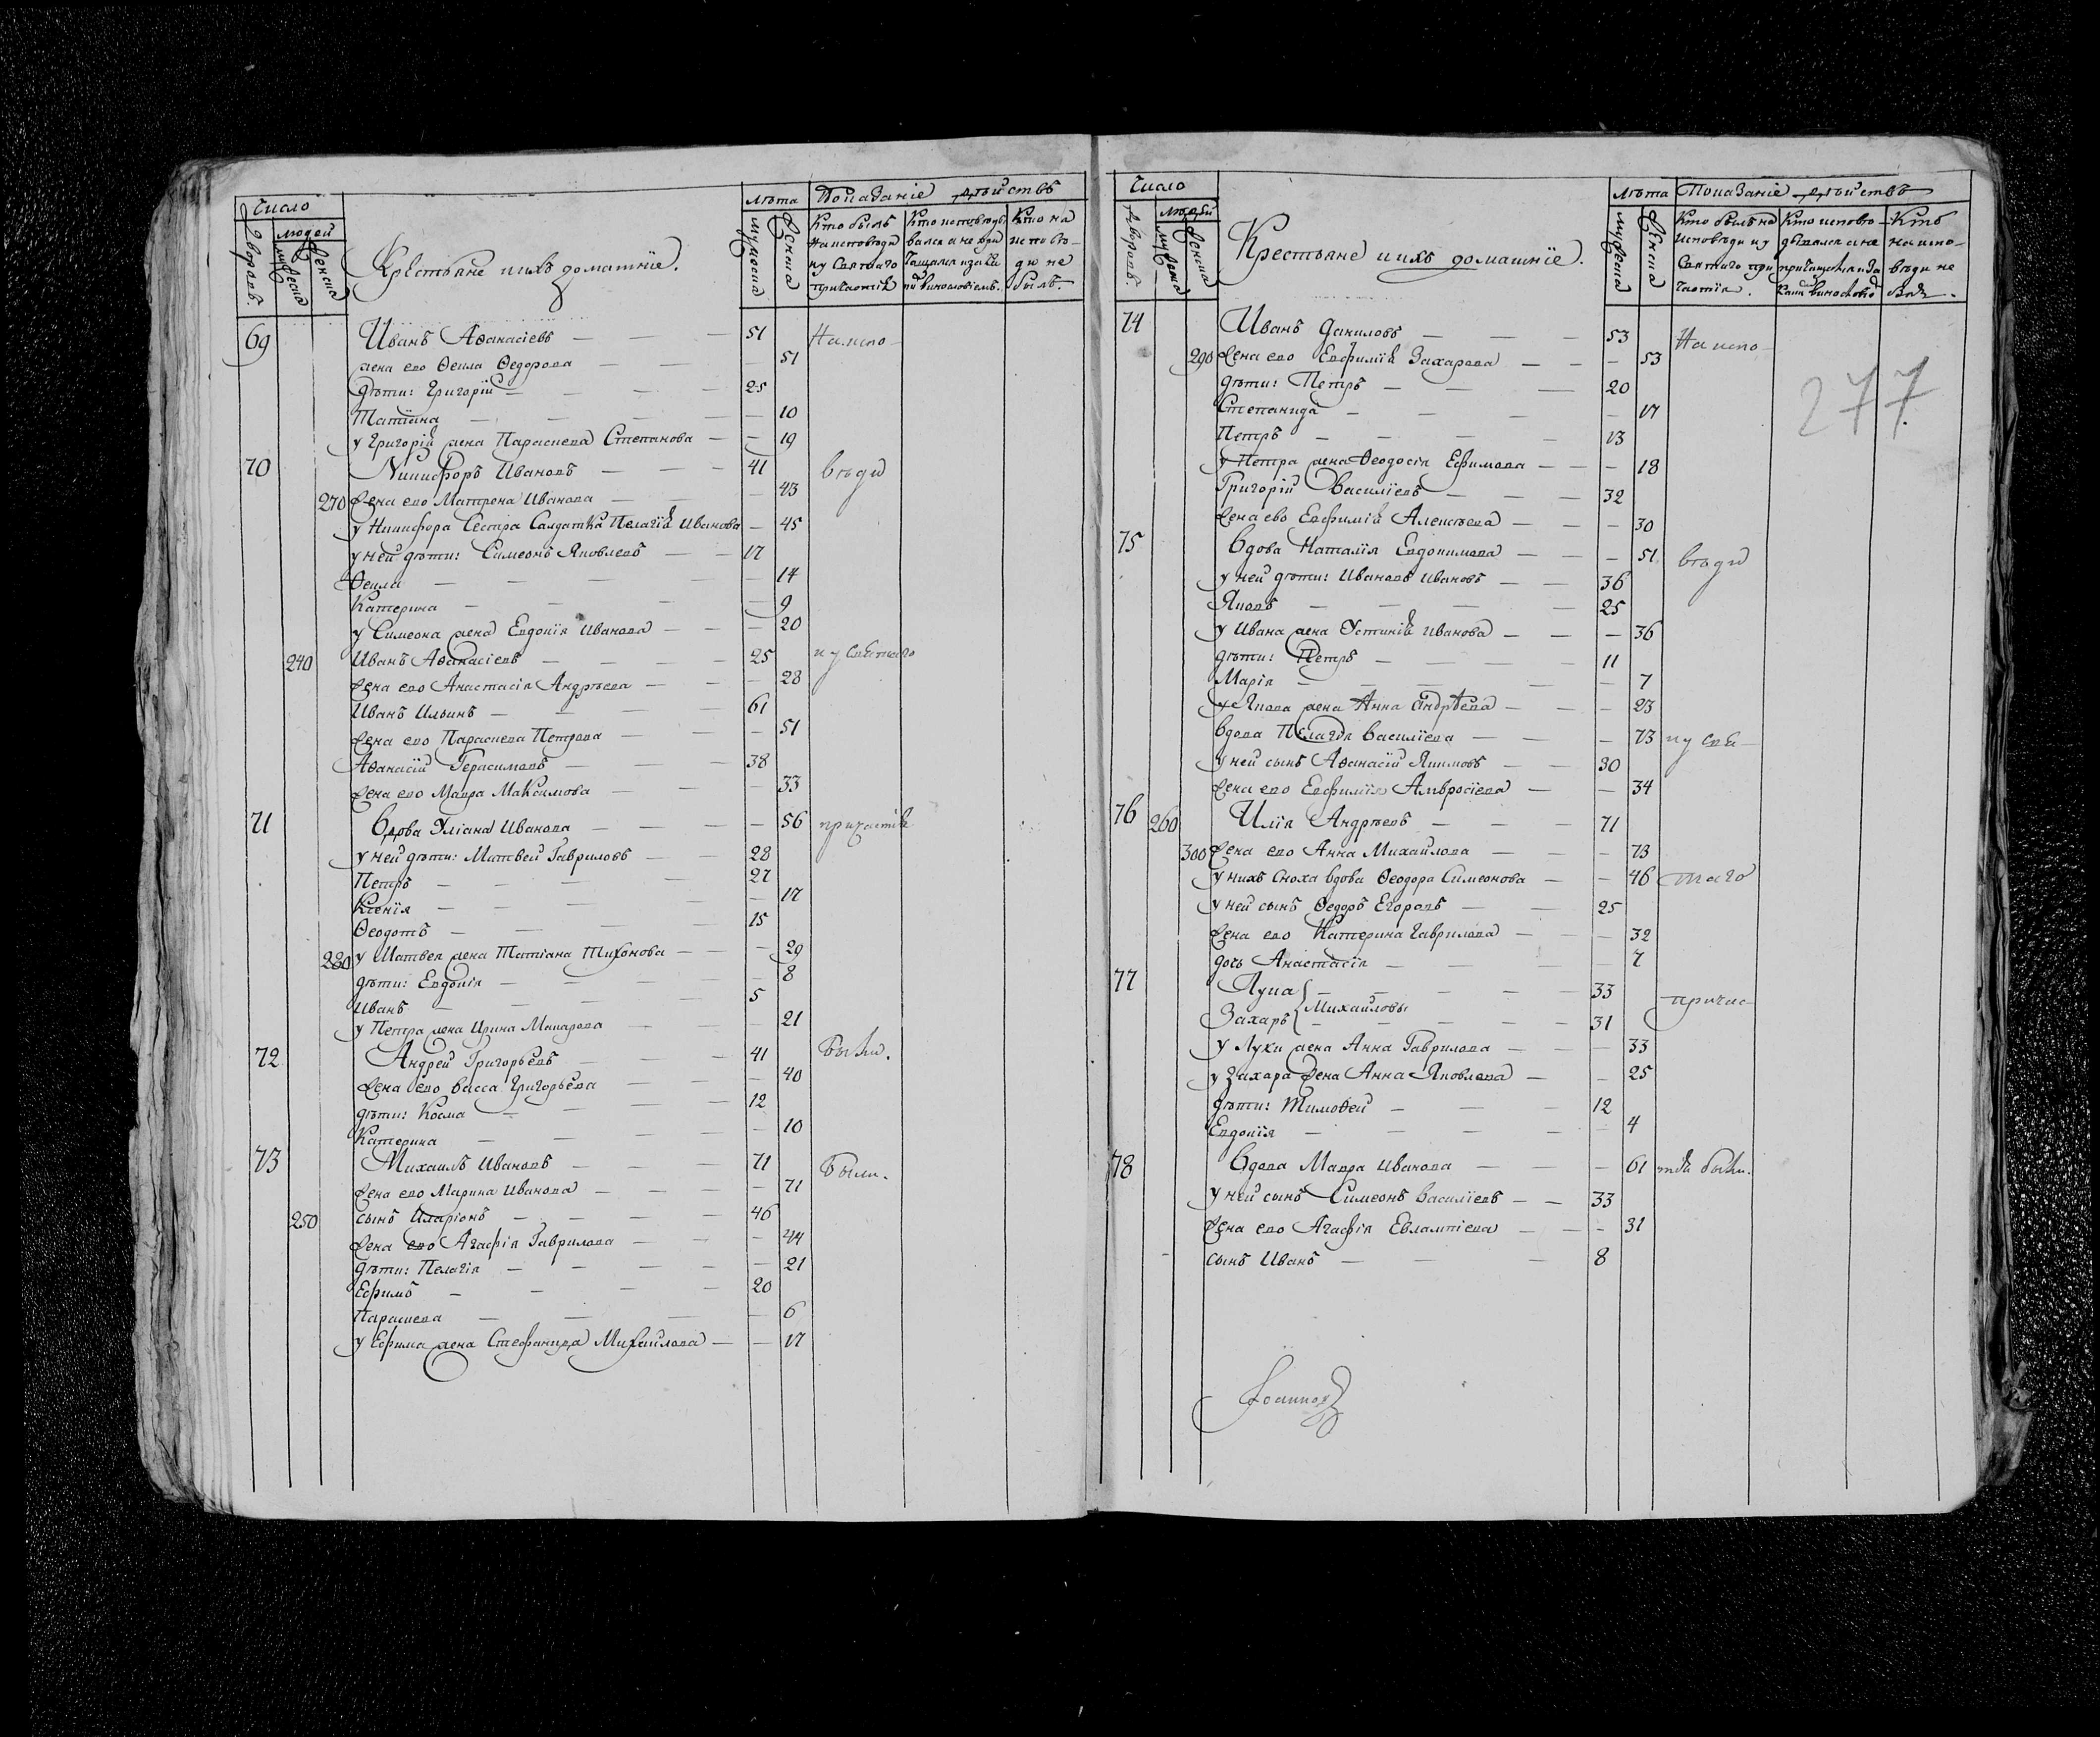 Число
Лѣта Показаніе дѣйствъ
дворовъ людей
мужеска женска
Крестьяне и ихъ домашніе.
мужеска женска
Кто былъ на исповѣди и у Святаго причастія
Кто исповѣдывался а не причащался и за каким винословіемъ.
Кто на исповѣди не былъ.
69 Иванъ Аѳанасіевъ — — — 51 На испо-
жена ево Ѳекла Ѳедорова — — — 51
дѣти: Григорій — — — 25
Татіана — — — 10
у Григорія жена Параскева Степанова — — 19
70 Никифоръ Ивановъ — — — 41 вѣди
270 жена ево Матрена Иванова — — — 43
у Никифора сестра Салдатка Пелагія Иванова — 45
у ней дѣти: Симеонъ Яковлевъ — — 17
Ѳекла — — — 14
Катерина — — — 9
у Симеона жена Евдокія Иванова — — — 20
240 Иванъ Аѳанасіевъ — — — 25 и у святаго
жена ево Анастасія Андрѣева — — — 28
Иванъ Ильинъ — — — 61
жена ево Параскева Петрова — — — 51
Аѳанасій Герасимовъ — — — 38
жена ево Мавра Максимова — — — 33
71 Вдова Уліана Иванова — — — 56 причастія
у ней дѣти: Матвей Гавриловъ — — 28
Петръ — — — 27
Ксенія — — — 17
Ѳеодотъ — — — 15
280 у Матвея жена Татіана Тихонова — — — 29
дѣти: Евдокія — — — 8
Иванъ — — — 5
у Петра жена Ирина Макарова — — — 21
72 Андрей Григорьевъ — — — 41 были.
жена ево Васса Григорьева — — — 40
дѣти: Косма — — — 12
Катерина — — — 10
73 Михаилъ Ивановъ — — — 71 Были.
жена ево Марина Иванова — — — 71
250 сынъ Иларіонъ — — — 46
жена ево Агафія Гаврилова — — — 44
дѣти: Пелагія — — — 21
Ефимъ — — — 20
Параскева — — — 6
у Ефима жена Стефанида Михайлова — — 17
Число
Лѣта Показаніе дѣйствъ
дворовъ. людей
мужеска женска
Крестьяне и ихъ домашніе.
мужеска женска
Кто былъ на исповѣди и у Святаго причастія.
Кто исповѣдывался а не причащался и за каким винословіе
Кто на исповѣди не былъ.
74 Иванъ Даниловъ — — — 53 На испо-
290 жена ево Евфимія Захарова — — — 53
277.
дѣти: Петръ — — — 20
Степанида — — — 17
Петръ — — — 13
у Петра жена Ѳеодосія Ефимова — — — 18
Григорій Василіевъ — — — 32
жена ево Евфимія Алексѣева — — — 30
75 Вдова Наталія Евдокимова — — — 51 вѣди
у ней дѣти: Ивановъ Ивановъ — — 36
Яковъ — — — 25
у Ивана жена Устинія Иванова — — — 36
дѣти: Петръ — — — 11
Марія — — — 7
у Якова жена Анна Андрѣева — — — 23
Вдова Пелагія Василіева — — — 73 и у свя-
у ней сынъ Аѳанасій Якимовъ — — 30
жена ево Евфимія Амвросіева — — 34
76 260 Илія Андрѣевъ — — — 71
300 жена ево Анна Михайлова — — — 73
у нихъ сноха вдова Ѳеодора Симеонова — — 46 таго
у ней сынъ Ѳедоръ Егоровъ — — 25
жена ево Катерина Гаврилова — — — 32
дочь Анастасія — — — 7
77 Лука — — — 33 причас-
Михайловы
Захаръ — — — 31
у Луки жена Анна Гаврилова — — — 33
у Захара жена Анна Яковлева — — 25
дѣти: Тимоѳей — — — 12
Евдокія — — — 4
78 Вдова Мавра Иванова — — 61 тія были.
у ней сынъ Симеонъ Василіевъ — — 33
жена ево Агафія Евлампіева — — — 31
сынъ Иванъ — — — 8